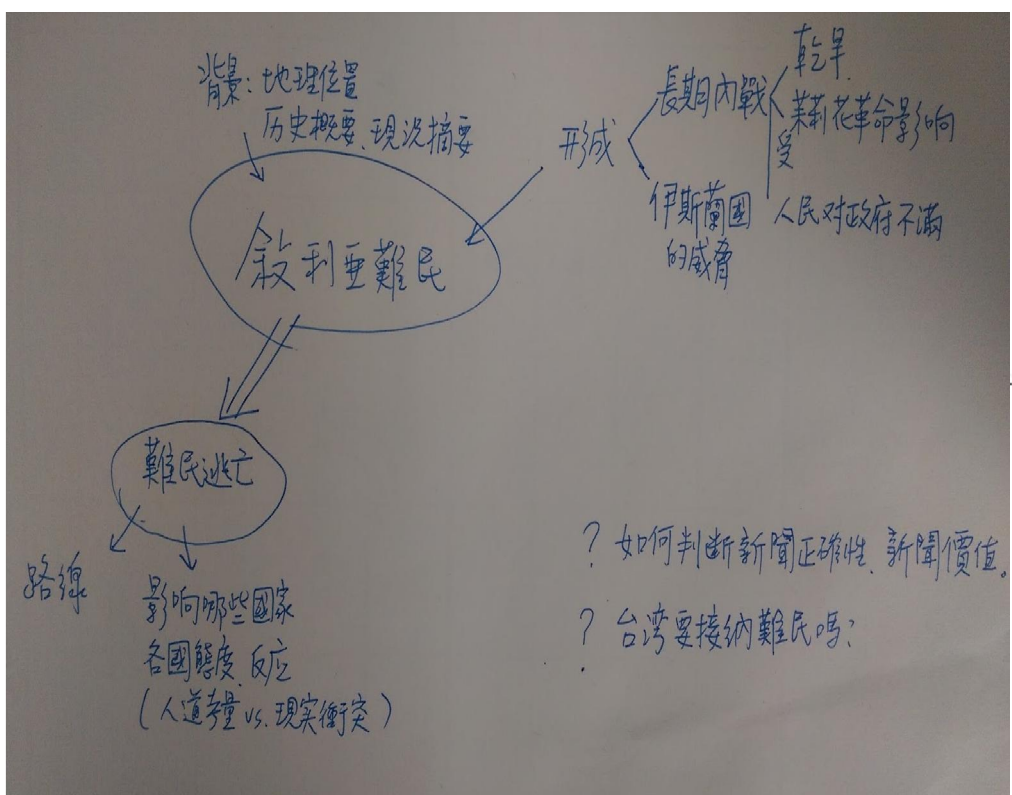 背景：地理位置
历史概要、現況摘要
敘利亜難民
形成
長期內戰
乾旱
受茉莉花革命影响
人民对政府不滿
伊斯蘭國
的威脅
難民逃亡
路線
影响哪些國家
各國態度、反应
（人道考量 vs. 現実衝突）
? 如何判断新聞正確性、新聞價值。
? 台湾要接納難民嗎？